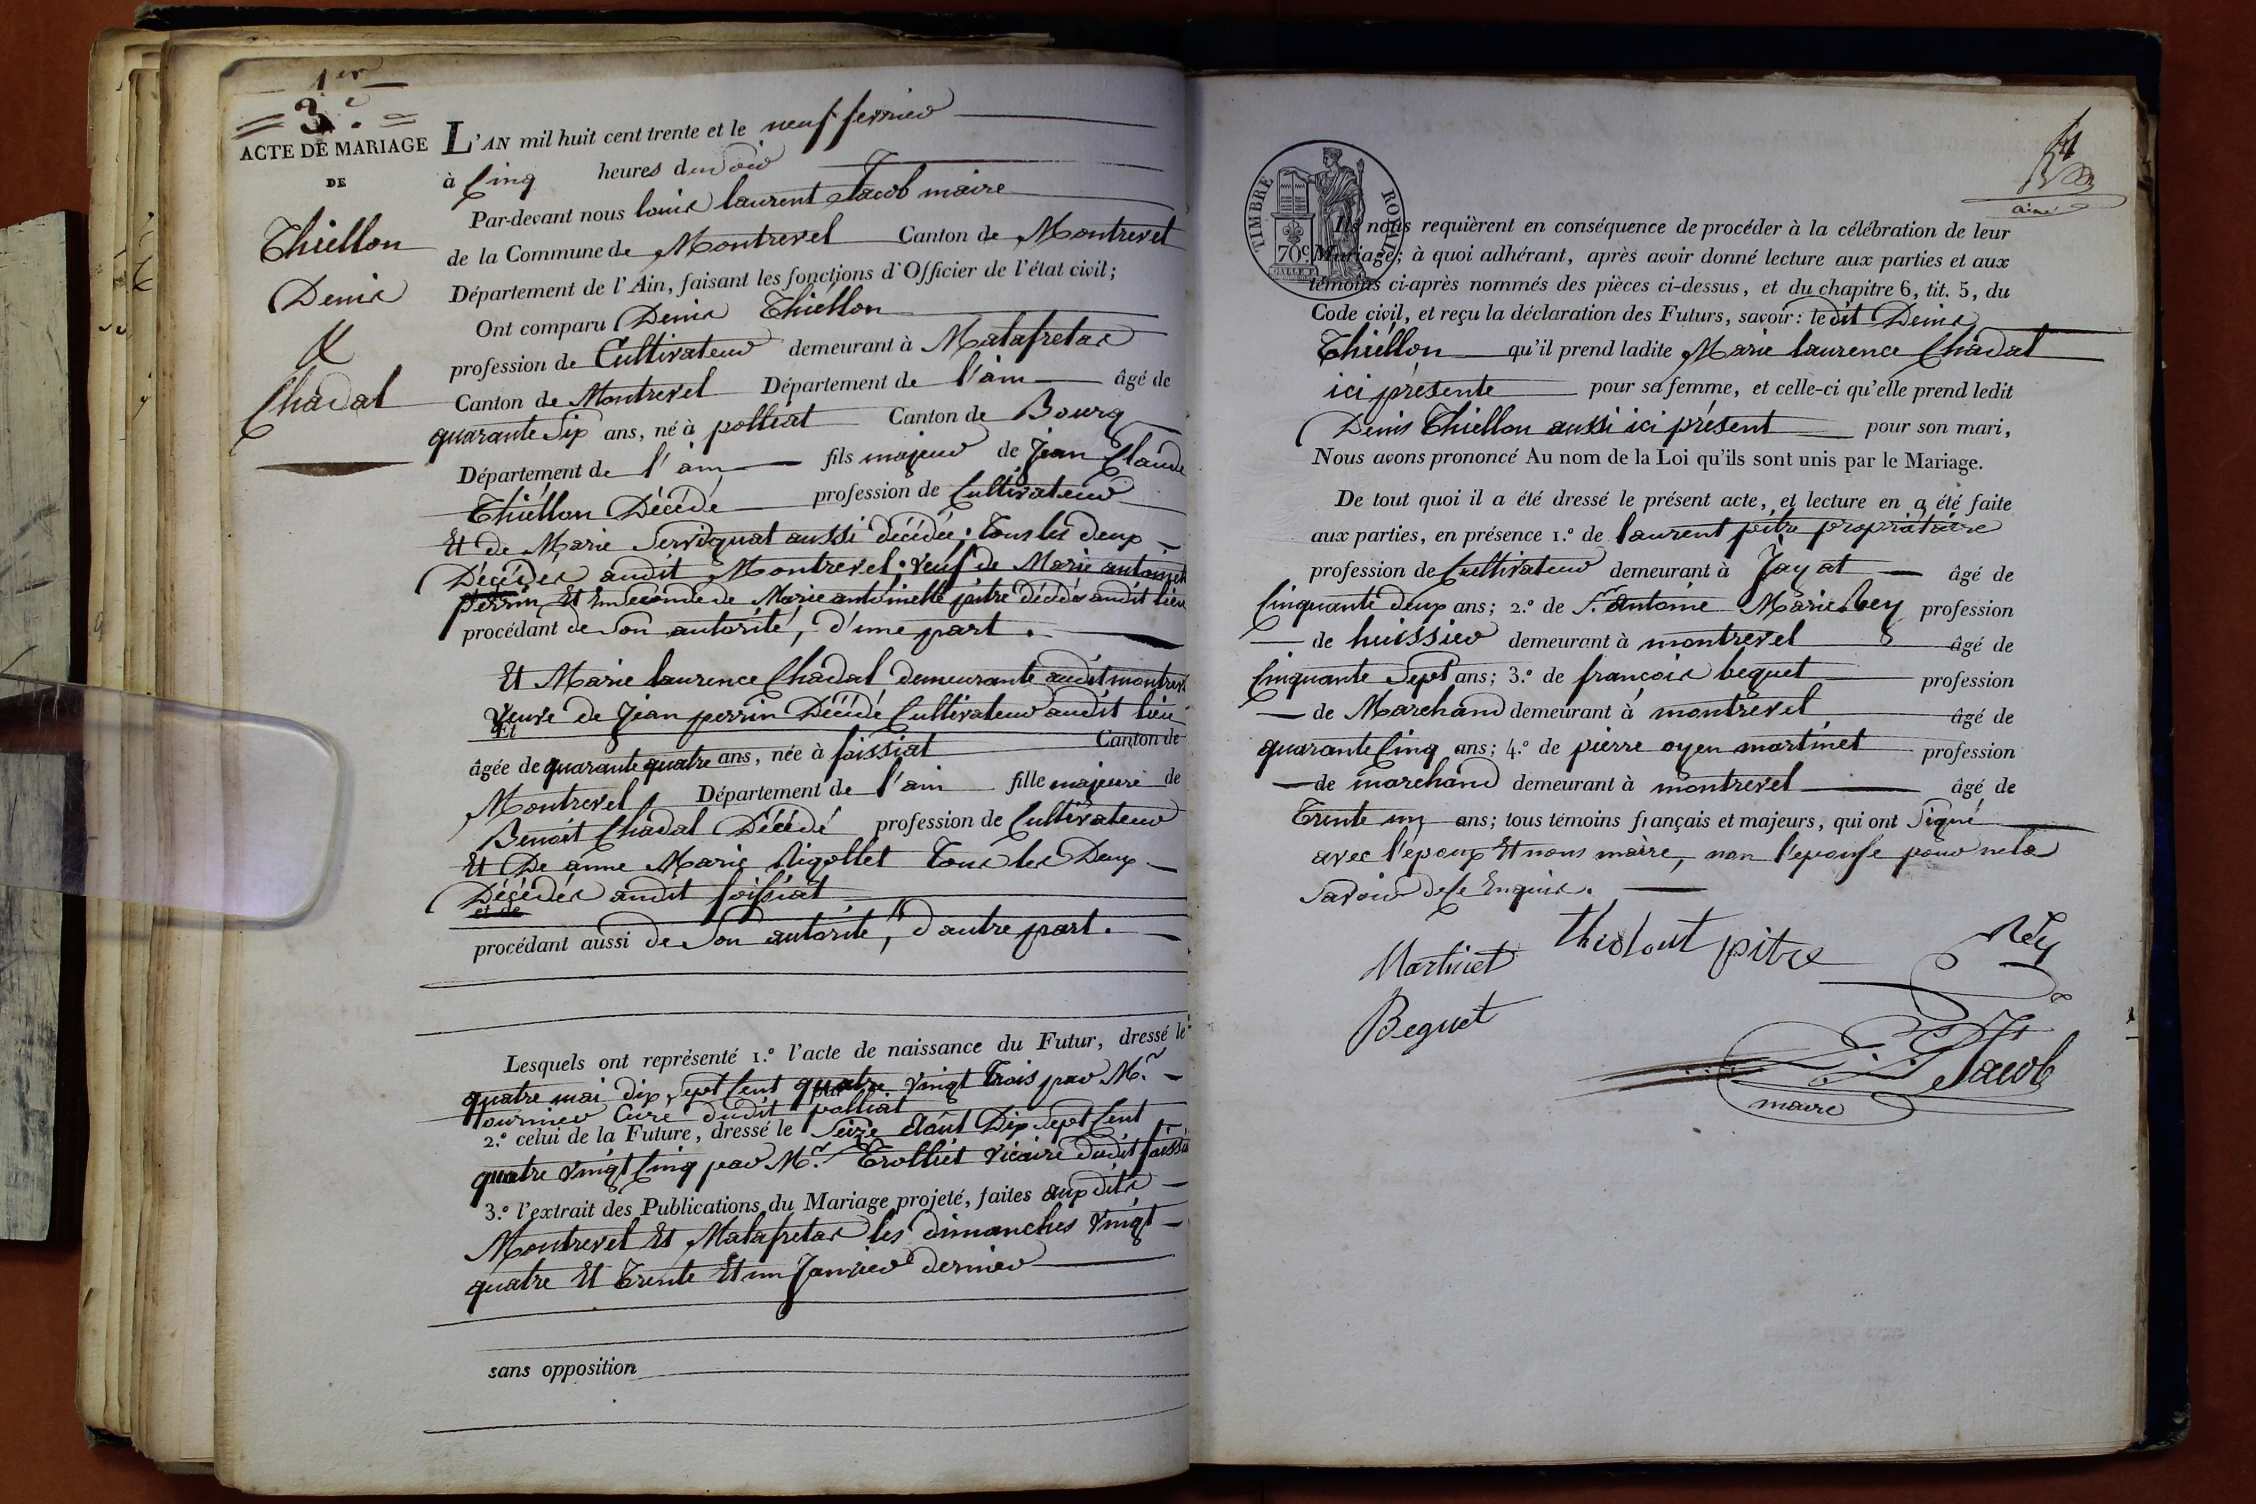 1er
3.e
ACTE DE MARIAGE
DE
Thiellon
Denis
&
Chadal
L'AN mil huit cent trente et le neuf fevrier
à Cinq heures du Soir
Par-devant nous louis laurent Jacob maire
de la Commune de Montrevel Canton de Montrevel
Département de l'Ain, faisant les fonctions d'Officier de l'état civil;
Ont comparu Denis Thiellon
profession de Cultivateur demeurant à Malafretas
Canton de Montrevel Département de l'ain âgé de
quarante Six ans, né à polliat Canton de Bourg
Département de l'ain fils majeur de Jean Claude
Thiellon Décédé profession de Cultivateur
Et de Marie Servignat aussi décédée; tous les deux
Décédés audit Montrevel; veuf de Marie antoinette
perrin, Et En seconde de Marie antoinette pitre décédés audit lieu
procédant de Son autorité, d'une part.
Et Marie laurence Chadal, demeurante audit montrevel
veuve de Jean perrin Décédé Cultivateur audit lieu
Et
âgée de quarante quatre ans, née à foissiat Canton de
Montrevel Département de l'ain fille majeure de
Benoit Chadal Décédé profession de Cultivateur
Et De anne Marie Rigollet tous les Deux
Décédés audit foissiat
et de
procédant aussi de Son autorité, d'autre part.
Lesquels ont représenté 1.º l'acte de naissance du Futur, dressé le
quatre mai dix Sept Cent quatre vingt trois par Mr.
par
tournier Curé dudit polliat
2.º celui de la Future, dressé le Seize Août Dix Sept Cent
quatre vingt Cinq par Mr. Trolliet vicaire dudit foissiat
3.º l'extrait des Publications du Mariage projeté, faites aux dits
Montrevel Et Malafretas les dimanches vingt
quatre Et Trente Et un Janvier dernier
sans opposition
TIMBRE ROYAL
70c
Ils nous requièrent en conséquence de procéder à la célébration de leur
Mariage; à quoi adhérant, après avoir donné lecture aux parties et aux
témoins ci-après nommés des pièces ci-dessus, et du chapitre 6, tit. 5, du
Code civil, et reçu la déclaration des Futurs, savoir: ledit Denis
Thiellon qu'il prend ladite Marie laurence Chadal
ici présente pour sa femme, et celle-ci qu'elle prend ledit
Denis Thiellon aussi ici présent pour son mari,
Nous avons prononcé Au nom de la Loi qu'ils sont unis par le Mariage.
De tout quoi il a été dressé le présent acte, et lecture en a été faite
aux parties, en présence 1.º de laurent pitre propriétaire
profession de Cultivateur demeurant à Jayat âgé de
Cinquante deux ans; 2.º de Sr. Antoine Marie Rey profession
de huissier demeurant à montrevel âgé de
Cinquante Sept ans; 3.º de francois bequet profession
de Marchand demeurant à montrevel âgé de
quarante Cinq ans; 4.º de pierre oyen martinet profession
de marchand demeurant à montrevel âgé de
Trente un ans; tous témoins français et majeurs, qui ont Signé
avec l'epoux Et nous maire, non l'epouse pour ne le
Savoir de ce Enquise.
Martinet pitre Rey
Bequet
Jacob
maire